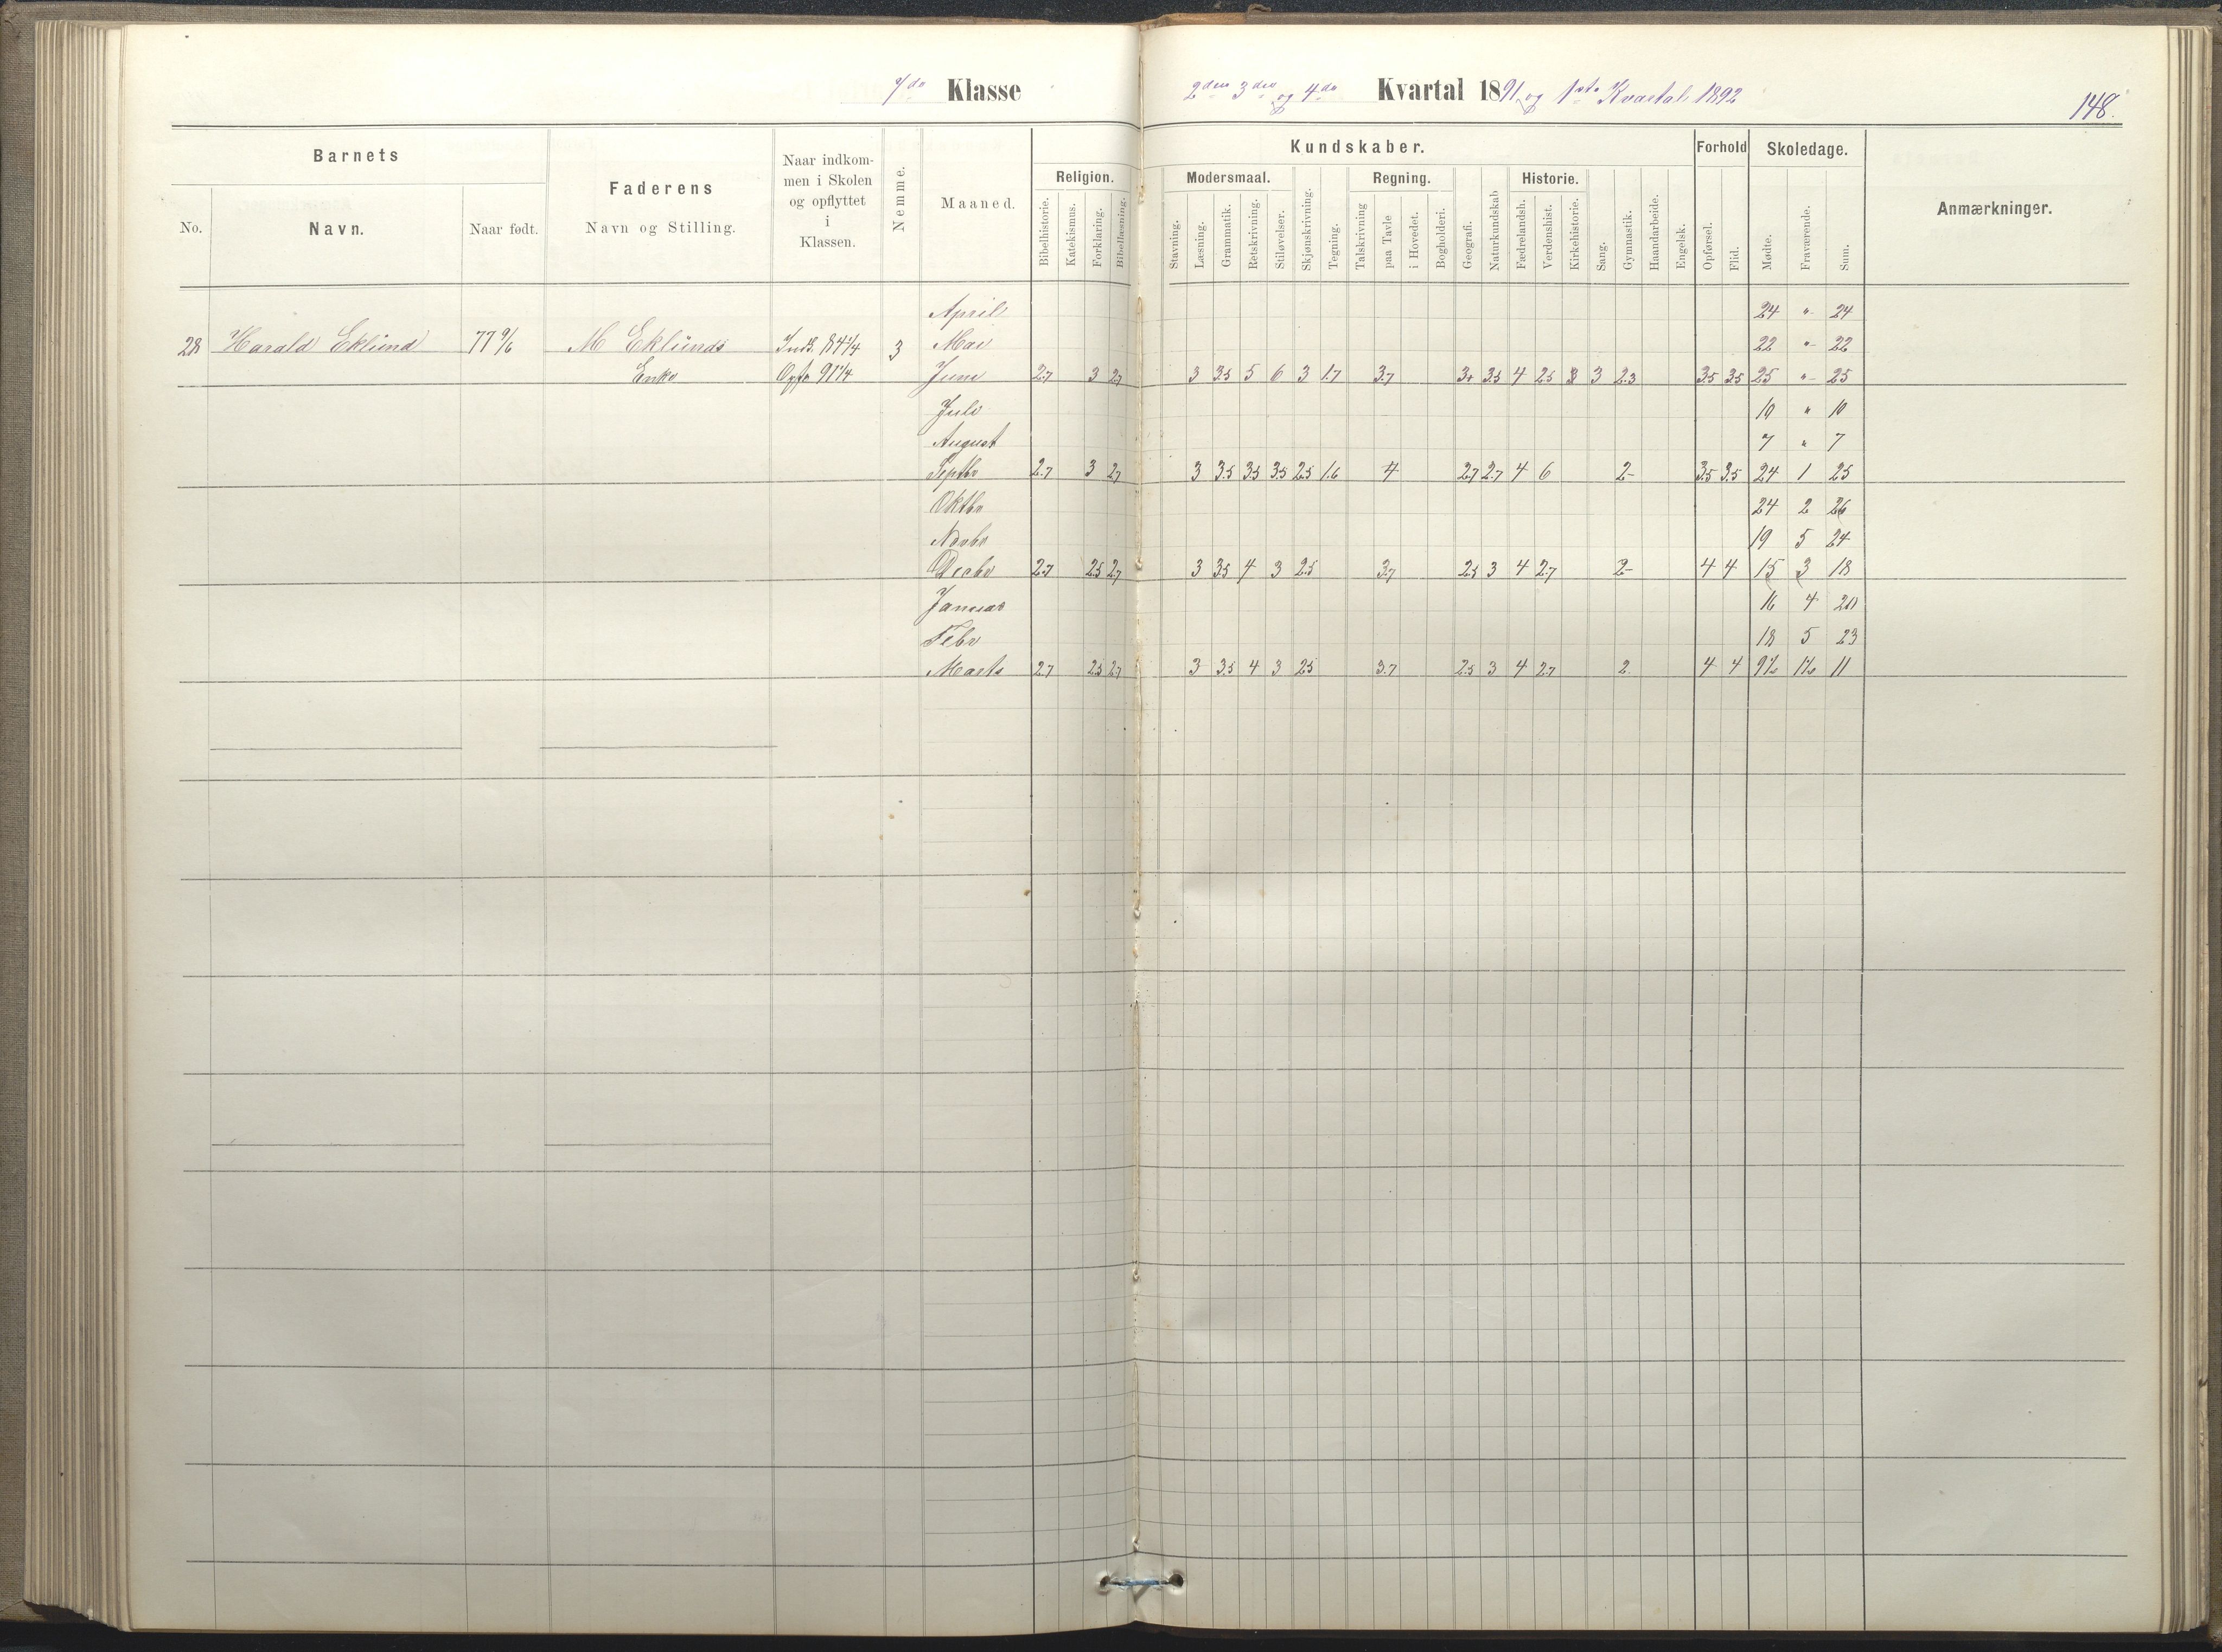 7de Klasse
2den 3die og 4de Kvartal 1891 og 1ste Kvartal 1892
148.
Barnets
Faderens
Navn og Stilling.
Naar indkommen i Skolen og opflyttet i Klassen.
Nemme.
Maaned.
Kundskaber.
Forhold
Skoledage.
Anmærkninger.
No.
Navn.
Naar født.
Religion.
Modersmaal.
Regning.
Historie.
Bibelhistorie. Katekismus. Forklaring. Bibellæsning. Stavning. Læsning. Grammatik. Retskrivning. Stiløvelser. Skjønskrivning. Tegning. Talskrivning paa Tavle i Hovedet. Bogholderi. Geografi. Naturkundskab Fædrelandsh. Verdenshist. Kirkehistorie. Sang. Gymnastik. Haandarbeide. Engelsk. Opførsel. Flid. Mødte. Fraværende. Sum.
April 24 " 24
28 Harald Eklund 77 9/6 M Eklunds Indk. 84 1/4 3 Mai 22 " 22
Enke Opfl 91 1/4 Juni 2.7 3 2.7 3 3.5 5 6 3 1.7 3.7 3+ 3.5 4 2.5 3 3 2.3 3.5 3.5 25 " 25
Juli 10 " 10
August 7 " 7
Septbr 2.7 3 2.7 3 3.5 3.5 3.5 2.5 1.6 4 2.7 2.7 4 6 2- 3.5 3.5 24 1 25
Oktbr 24 2 26
Novbr 19 5 24
Decbr 2.7 2.5 2.7 3 3.5 4 3 2.5 3.7 2.5 3 4 2.7 2- 4 4 15 3 18
Januar 16 4 20
Febr 18 5 23
Marts 2.7 2.5 2.7 3 3.5 4 3 2.5 3.7 2.5 3 4 2.7 2. 4 4 9½ 1½ 11